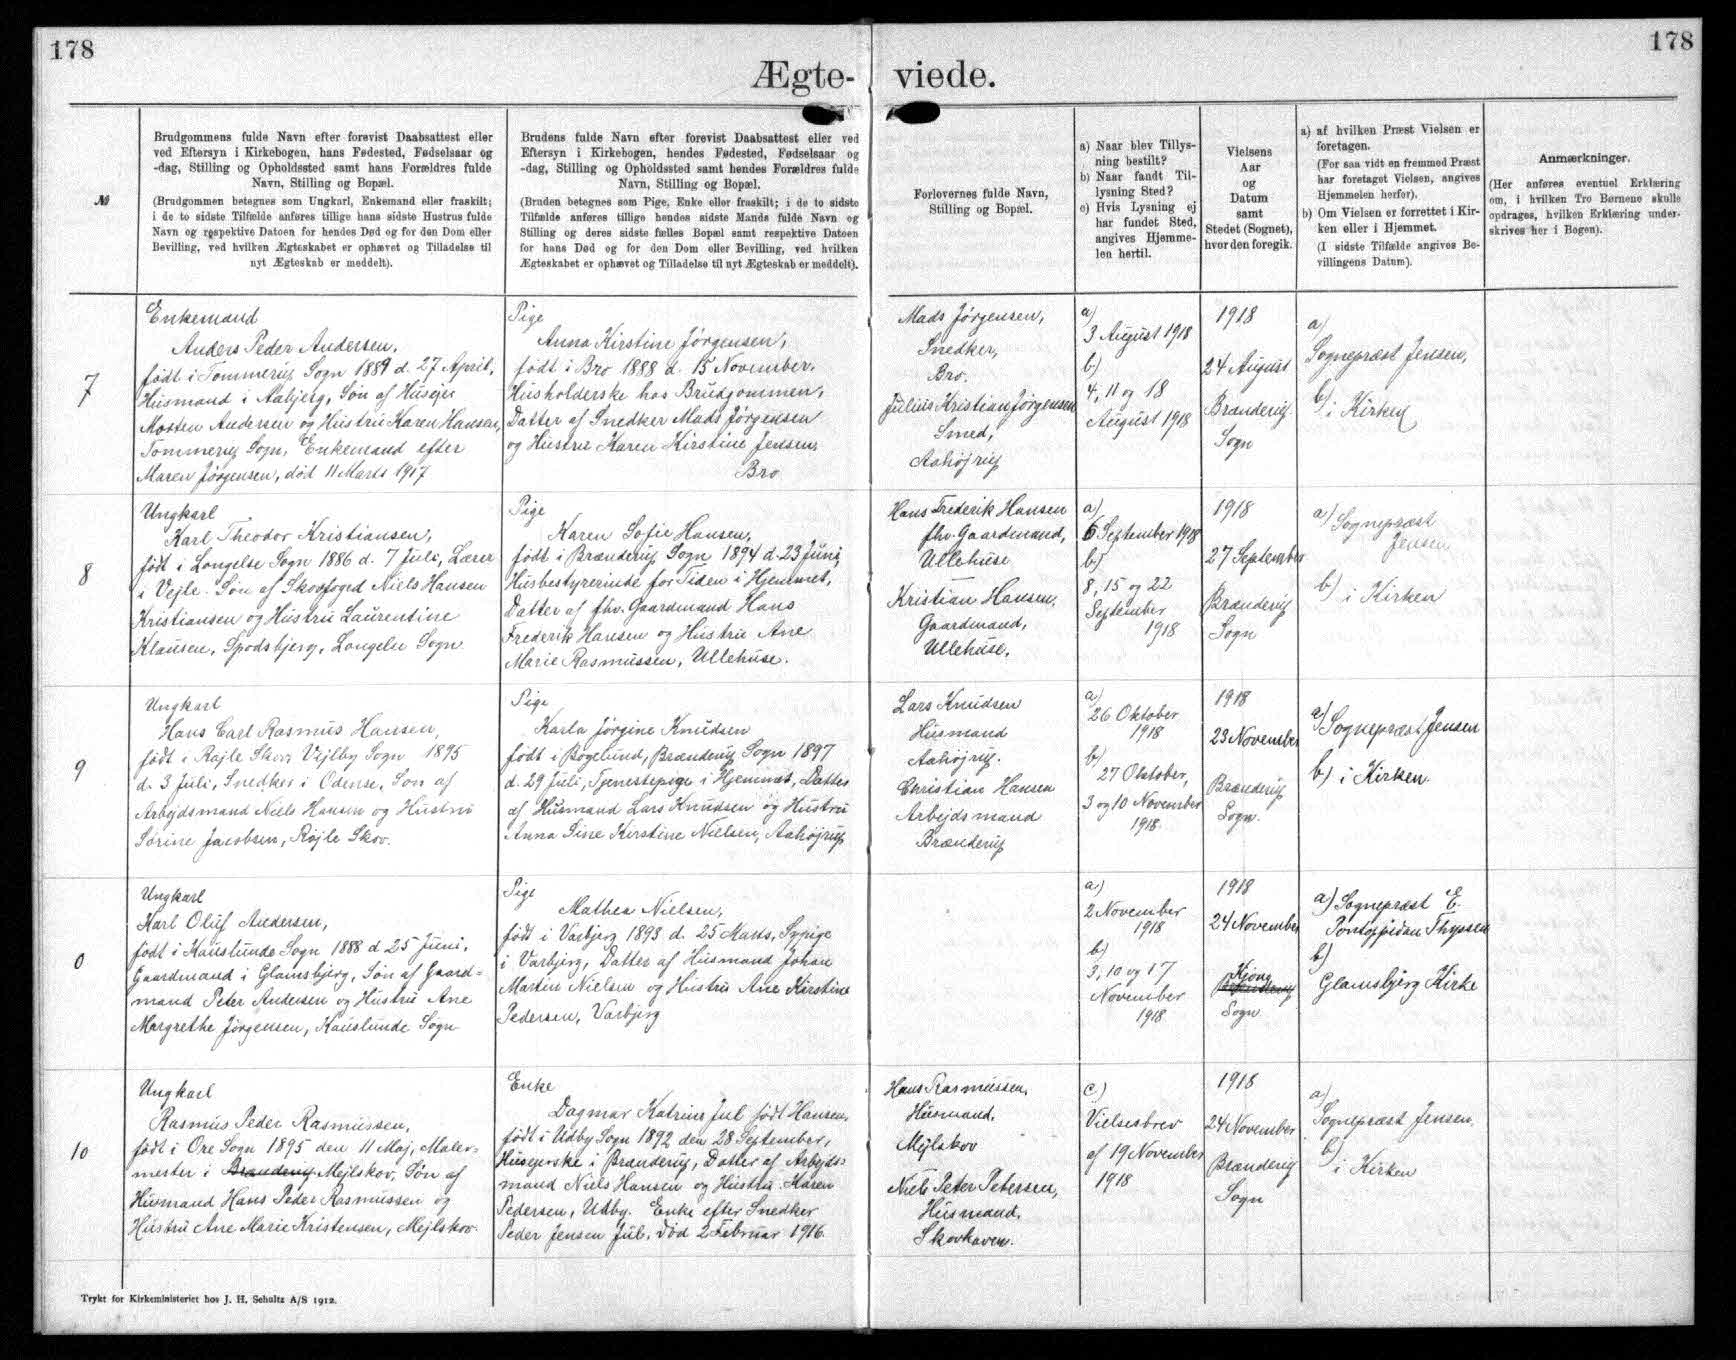 178
178
Ægte- viede.
№
Brudgommens fulde Navn efter forevist Daabsattest eller
ved Eftersyn i Kirkebogen, hans Fødested, Fødselsaar og
-dag, Stilling og Opholdssted samt hans Forældres fulde
Navn, Stilling og Bopæl.
(Brudgommen betegnes som Ungkarl, Enkemand eller fraskilt;
i de to sidste Tilfælde anføres tillige hans sidste Hustrus fulde
Navn og respektive Datoen for hendes Død og for den Dom eller
Bevilling, ved hvilken Ægteskabet er ophævet og Tilladelse til
nyt Ægteskab er meddelt).
Brudens fulde Navn efter forevist Daabsattest eller ved
Eftersyn i Kirkebogen, hendes Fødested, Fødselsaar og
-dag, Stilling og Opholdssted samt hendes Forældres fulde
Navn, Stilling og Bopæl.
(Bruden betegnes som Pige, Enke eller fraskilt; i de to sidste
Tilfælde anføres tillige hendes sidste Mands fulde Navn og
Stilling og deres sidste fælles Bopæl samt respektive Datoen
for hans Død og for den Dom eller Bevilling, ved hvilken
Ægteskabet er ophævet og Tilladelse til nyt Ægteskab er meddelt).
Forlovernes fulde Navn,
Stilling og Bopæl.
a) Naar blev Tillys-
ning bestilt?
b) Naar fandt Til-
lysning Sted?
c) Hvis Lysning ej
har fundet Sted,
angives Hjemme-
len hertil.
Vielsens
Aar
og
Datum
samt
Stedet (Sognet),
hvor den foregik.
a) af hvilken Præst Vielsen er
foretagen.
(For saa vidt en fremmed Præst
har foretaget Vielsen, angives
Hjemmelen herfor).
b) Om Vielsen er forrettet i Kir-
ken eller i Hjemmet.
(I sidste Tilfælde angives Be-
villingens Datum).
Anmærkninger.
(Her anføres eventuel Erklæring
om, i hvilken Tro Børnene skulle
opdrages, hvilken Erklæring under-
skrives her i Bogen).
7
Enkemand
Anders Peder Andersen,
født i Tommerup Sogn 1889 d. 27 April,
Husmand i Aabjerg, Søn af Husejer
Morten Andersen og Hustru Karen Hansen,
Tommerup Sogn, Enkemand efter
Maren Jørgensen, død 11 Marts 1917
Pige
Anna Kirstine Jørgensen,
født i Bro 1888 d. 15 November.
Husholderske hos Brudgommen,
Datter af Snedker Mads Jørgensen
og Hustru Karen Kirstine Jensen,
Bro
Mads Jørgensen,
Snedker,
Bro.
Julius Kristian Jørgensen
Smed,
Aahøjrup
a)
3 August 1918
b)
4, 11 og 18
August 1918
1918
24 August
Brænderup
Sogn
a)
Sognepræst Jensen,
b)
i Kirken
8
Ungkarl
Karl Theodor Kristiansen,
født i Longelse Sogn 1886 d. 7 Juli, Lærer
i Vejle. Søn af Skovfoged Niels Hansen
Kristiansen og Hustru Laurentine
Klausen, Spodsbjerg, Longelse Sogn
Pige
Karen Sofie Hansen,
født i Brænderup Sogn 1894 d. 23 Juni,
Husbestyrerinde for Tiden i Hjemmet,
Datter af fhv. Gaardmand Hans
Frederik Hansen og Hustru Ane
Marie Rasmussen, Ullehuse.
Hans Frederik Hansen
fhv. Gaardmand,
Ullehuse
Kristian Hansen,
Gaardmand,
Ullehuse.
a)
6 September 1918
b)
8, 15 og 22
September
1918
1918
27 September
Brænderup
Sogn
a) Sognepræst
Jensen
b) i Kirken
9
Ungkarl
Hans Carl Rasmus Hansen,
født i Røjle Skov, Vejlby Sogn 1895
d. 3 Juli, Snedker i Odense, Søn af
Arbejdsmand Niels Hansen og Hustru
Sørine Jacobsen, Røjle Skov.
Pige
Karla Jørgine Knudsen
født i Bøgelund, Brænderup Sogn 1897
d. 29 Juli, Tjenestepige i Hjemmet, Datter
af Husmand Lars Knudsen og Hustru
Anna Sine Kirstine Nielsen, Aahøjrup
Lars Knudsen
Husmand
Aahøjrup.
Christian Hansen
Arbejdsmand
Brænderup
a)
26 Oktober
1918
b)
27 Oktober,
3 og 10 November
1918.
1918
23 November
Brænderup
Sogn.
a) Sognepræst Jensen
b) i Kirken.
0
Ungkarl
Karl Oluf Andersen,
født i Kauslunde Sogn 1888 d 25 Juni,
Gaardmand i Glamsbjerg, Søn af Gaard-
mand Peter Andersen og Hustru Ane
Margrethe Jørgensen, Kauslunde Sogn
Pige
Mathea Nielsen,
født i Varbjerg 1893 d. 25 Marts, Sypige
i Varbjerg, Datter af Husmand Johan
Martin Nielsen og Hustru Ane Kirstine
Pedersen, Varbjerg
a)
2 November
1918
b)
3, 10 og 17
November
1918
1918
24 November
Kjøng
Brænderup
Sogn
a) Sognepræst E.
Pontoppidan Thyssen
b)
Glamsbjerg Kirke
10
Ungkarl
Rasmus Peder Rasmussen,
født i Ore Sogn 1895 den 11 Maj, Maler-
mester i Brænderup Mejlskov, Søn af
Husmand Hans Peder Rasmussen og
Hustru Ane Marie Kristensen, Mejlskov.
Enke
Dagmar Katrine Jul født Hansen,
født i Udby Sogn 1892 den 28 September,
Husejerske i Brænderup, Datter af Arbejds-
mand Niels Hansen og Hustru Karen
Pedersen, Udby. Enke efter Snedker
Peder Jensen Jul, død 2 Februar 1916.
Hans Rasmussen,
Husmand.
Mejlskov
Niels Peter Petersen,
Husmand.
Skovhaven.
c)
Vielsesbrev
af 19 November
1918
1918
24 November
Brænderup
Sogn
a)
Sognepræst Jensen.
b)
i Kirken
Trykt for Kirkeministeriet hos J. H. Schultz A/S 1912.